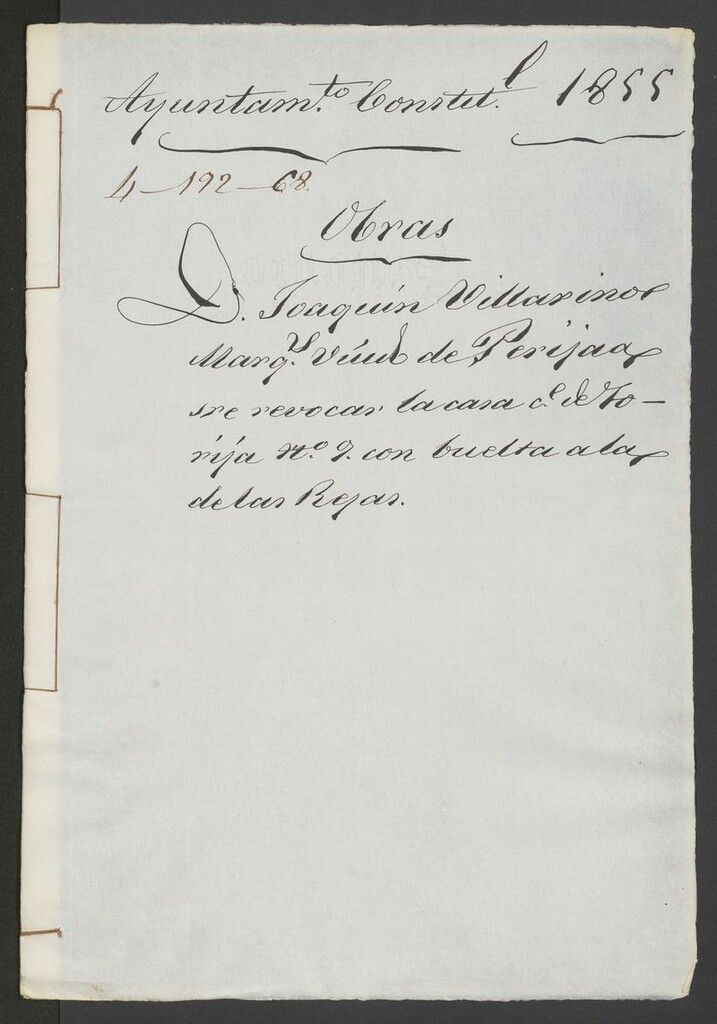 Ayuntam.to Constit.l 1855
4-192-68.
Obras
D. Joaquin Villarino
Marq.s de Perijaa
sre revocar la casa c.e de To-
rija n.o 9. con buelta a la
de las Rejas.